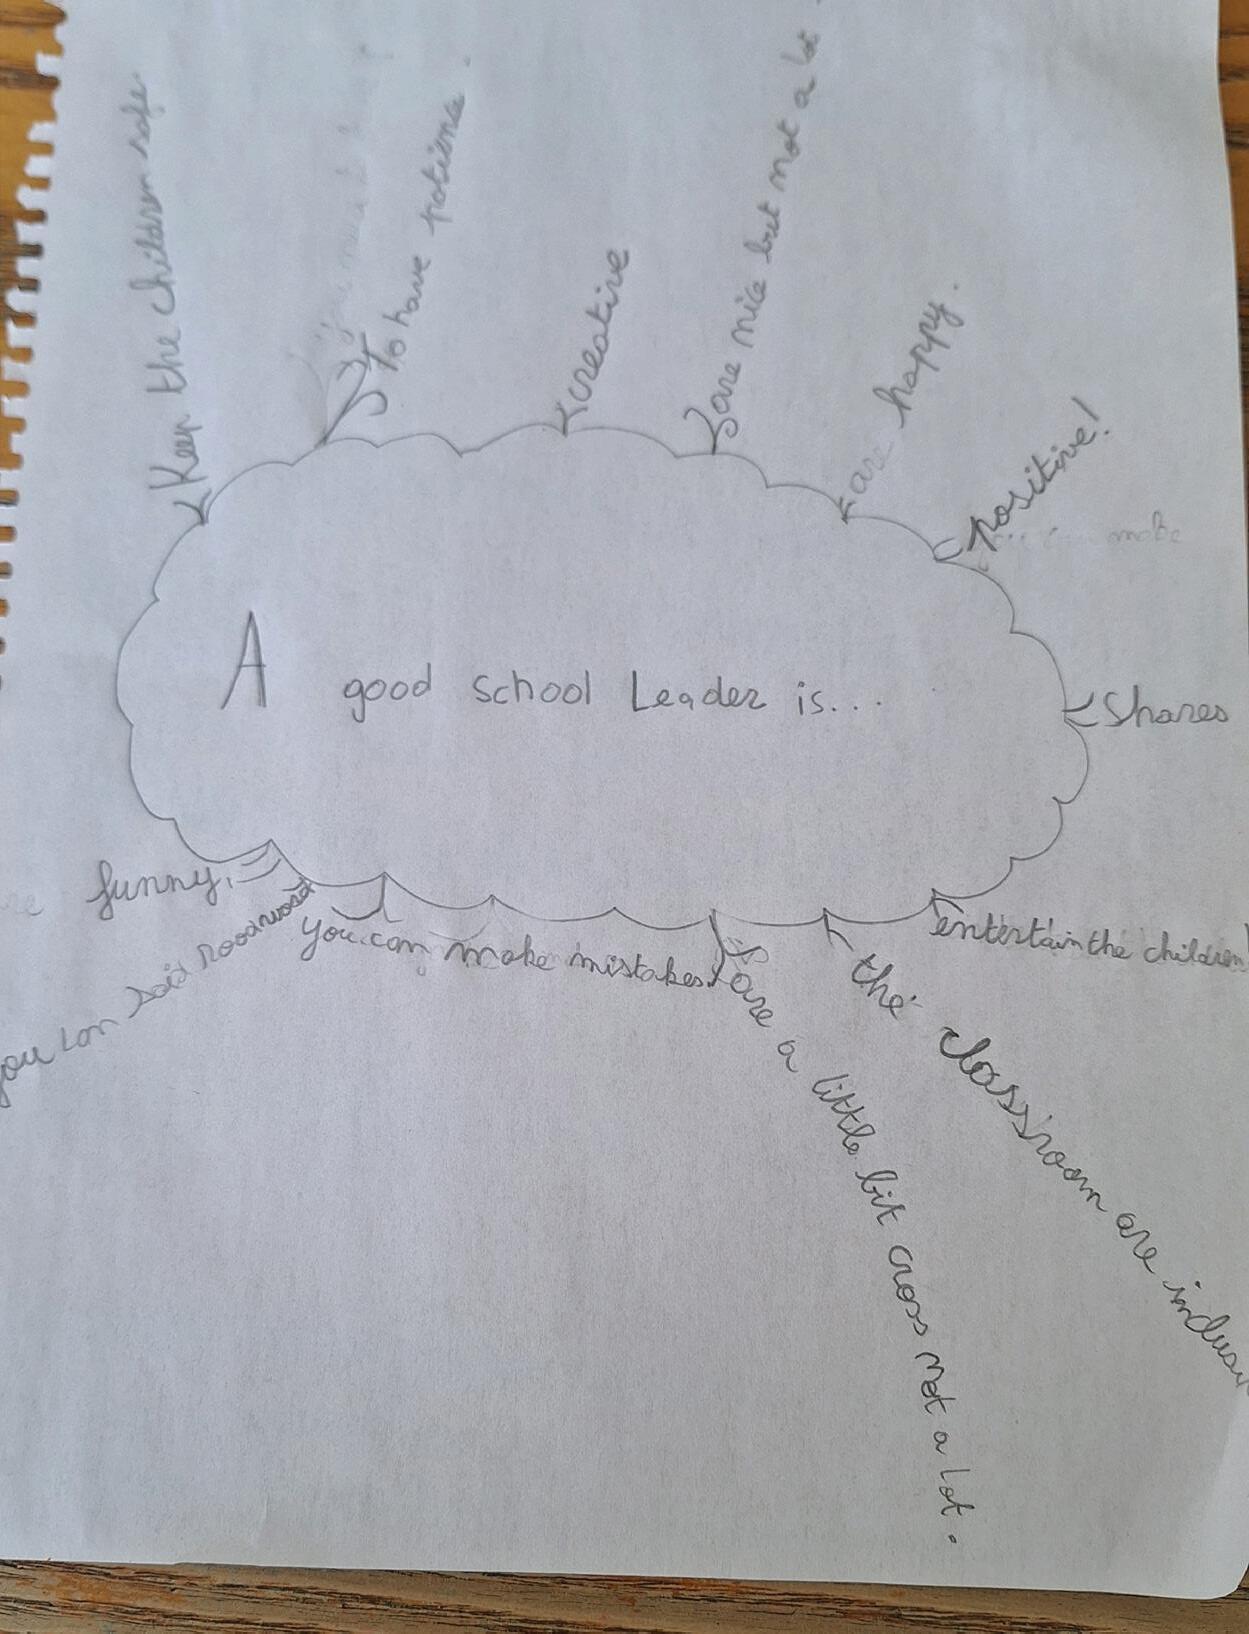 Keep the children safe
To have patience.
creative
are nice but not a lot.
are happy.
positive!
make
A good school Leader is...
Shares
funny.
you can said
you can make mistakes.
are a little bit cross not a lot.
the classroom are
entertain the children